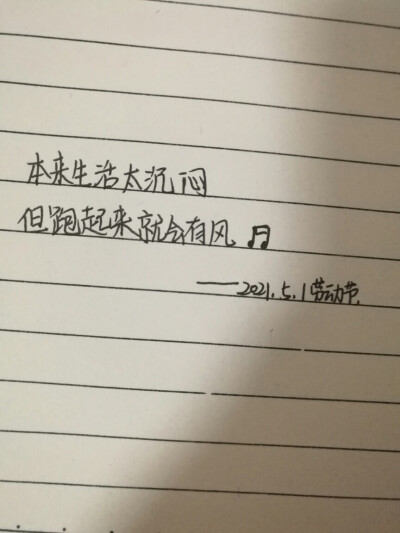 本来生活太沉闷
但跑起来就会有风🎵
——2021.5.1劳动节.